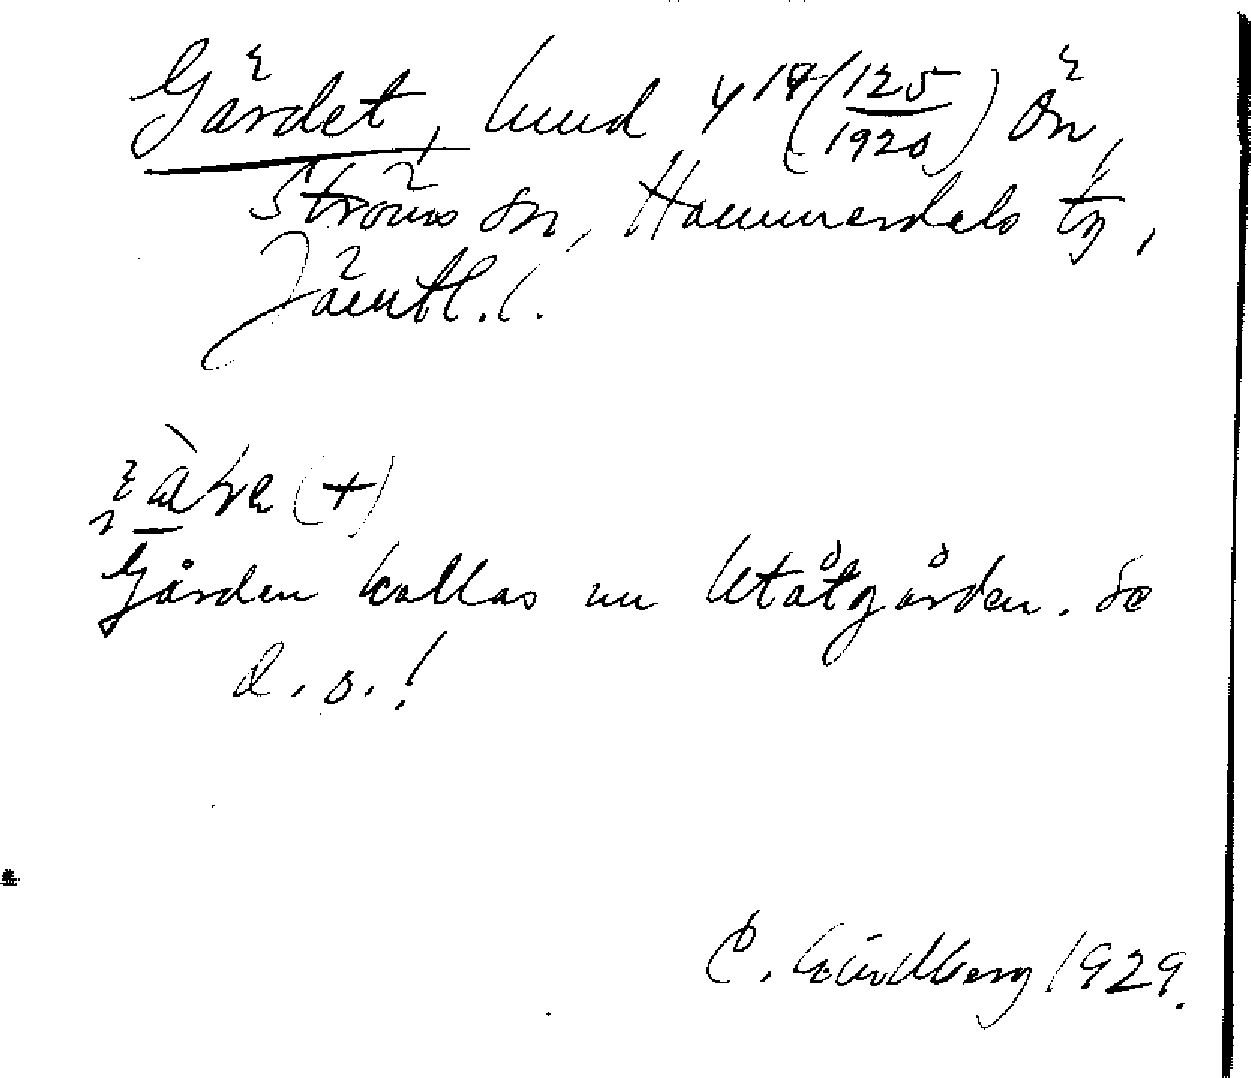 Gärdet, hmd 4¹⁴(125/1920) Ön,
Ströms sn, Hammerdals tg,
Jämtl. l.
(+)
Gården kallas nu Utåtgården. Se
d. o.!
C. Lindberg 1929.